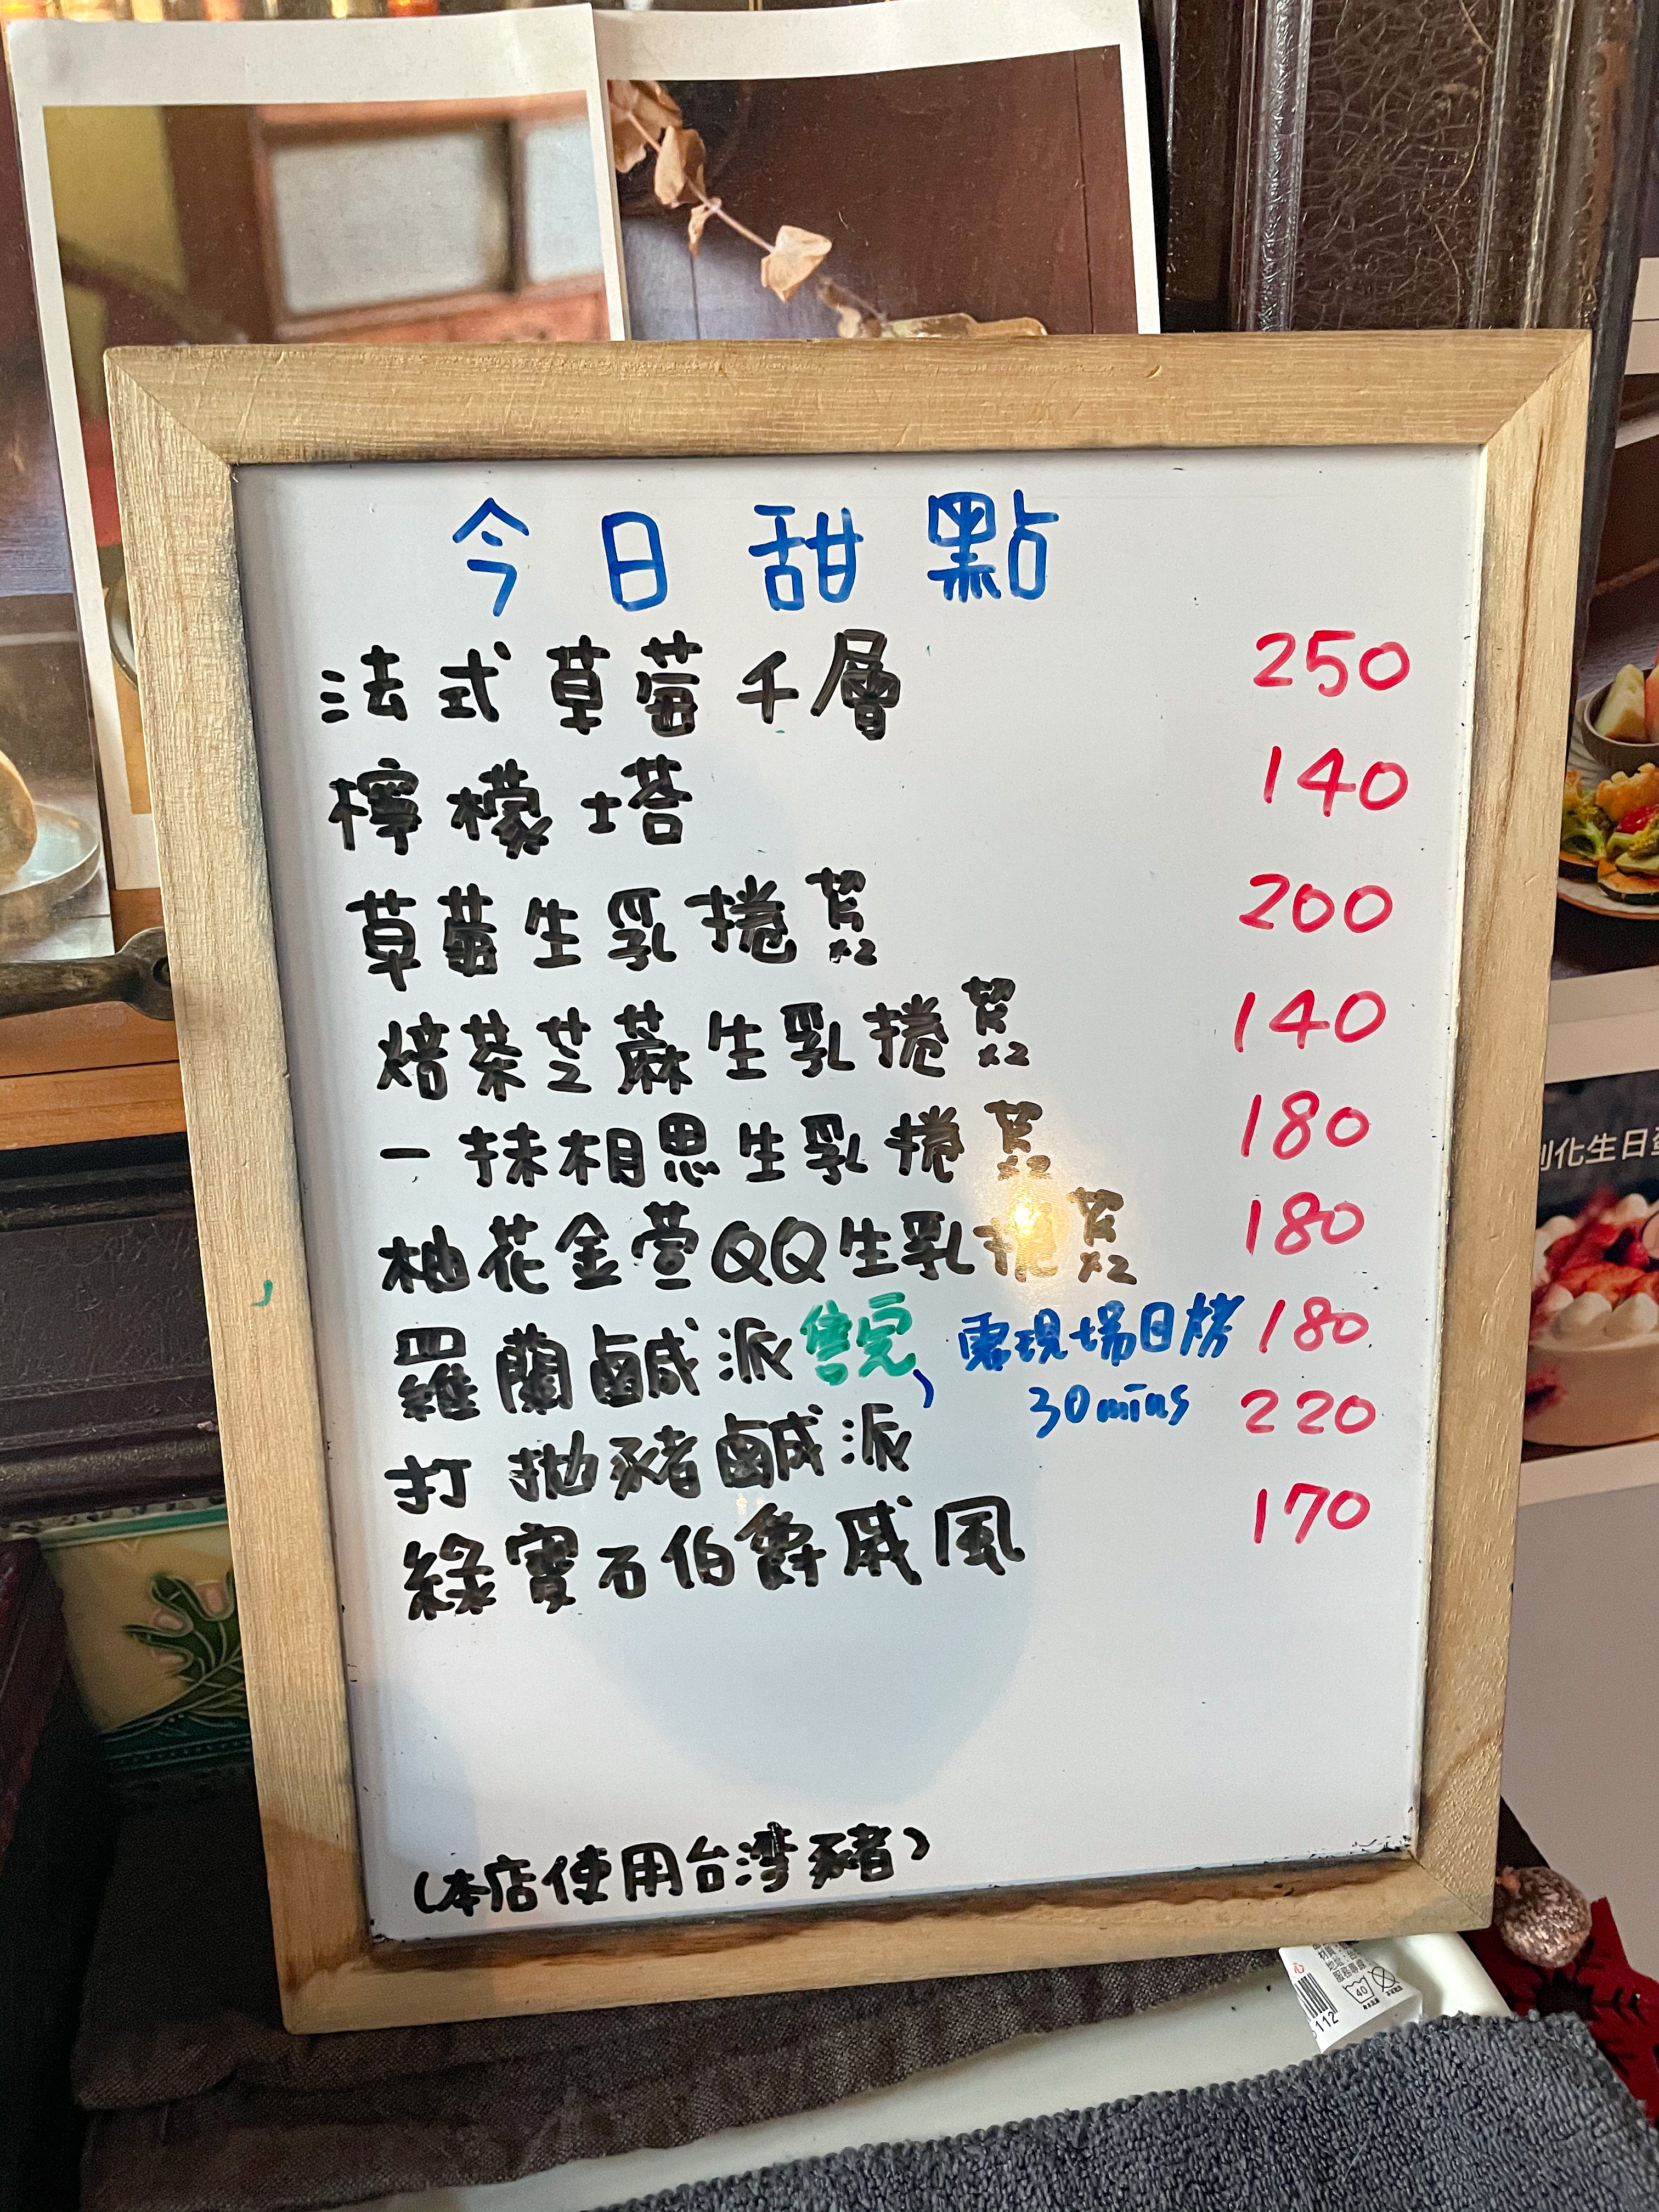 今日甜點
法式草莓千層 250
檸檬塔 140
草莓生乳捲 x2 200
焙茶芝蔴生乳捲 x2 140
一抹相思生乳捲 x2 180
柚花金萱QQ生乳捲 x2 180
羅蘭鹹派 售完 需現場 180
30mins
打拋豬鹹派 220
綠寶石伯爵戚風 170
(本店使用台湾豬)
化生日
112
40